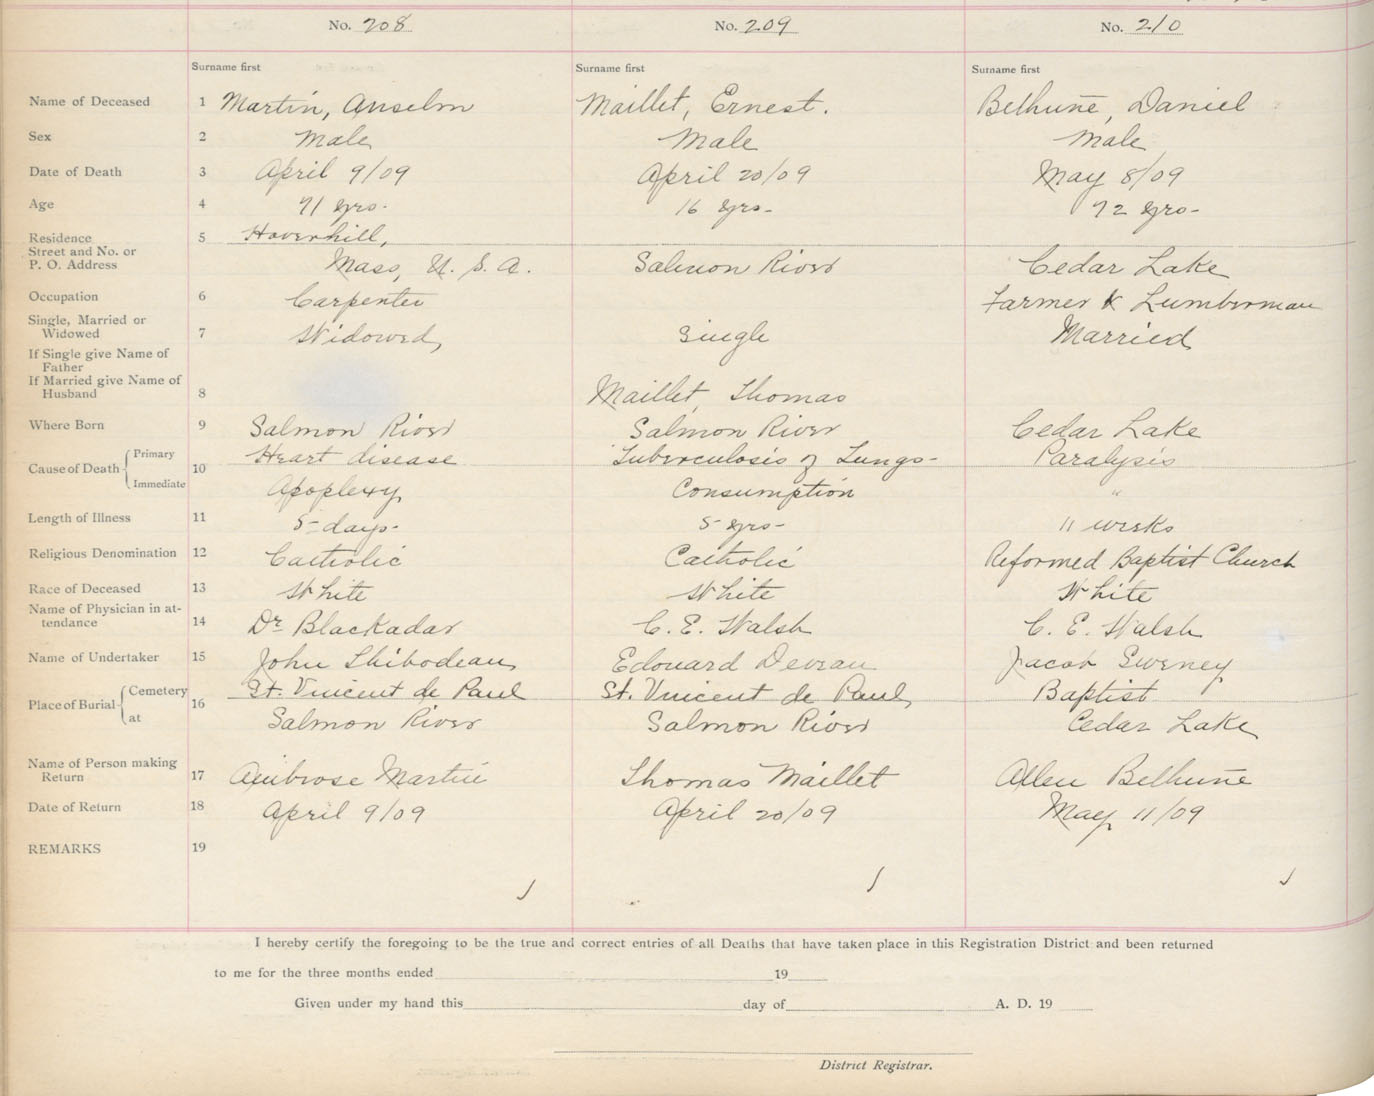 No. 208 No. 209 No. 210
Surname first Surname first Surname first
Name of Deceased 1 Martin, Anselm Maillet, Ernest. Bethune, Daniel
Sex 2 Male Male Male
Date of Death 3 April 9/09 April 20/09 May 8/09
Age 4 71 yrs. 16 yrs- 72 yrs-
Residence 5 Haverhill,
Street and No. or
P. O. Address Mass, U. S. A. Salmon River Cedar Lake
Occupation 6 Carpenter Farmer & Lumberman
Single, Married or
Widowed 7 Widowed, Single Married
If Single give Name of
Father
If Married give Name of
Husband 8 Maillet, Thomas
Where Born 9 Salmon River Salmon River Cedar Lake
Cause of Death 10 Primary Heart disease Tuberculosis of Lungs- Paralysis
Immediate Apoplexy Consumption "
Length of Illness 11 5 days- 5 yrs- 11 weeks
Religious Denomination 12 Catholic Catholic Reformed Baptist Church
Race of Deceased 13 White White White
Name of Physician in at-
tendance 14 Dr Blackadar C. E. Walsh C. E. Walsh
Name of Undertaker 15 John Thibodeau Edouard Deveau Jacob Sweney
Place of Burial 16 Cemetery St. Vincent de Paul St. Vincent de Paul Baptist
at Salmon River Salmon River Cedar Lake
Name of Person making
Return 17 Ambrose Martin Thomas Maillet Allen Bethune
Date of Return 18 April 9/09 April 20/09 May 11/09
REMARKS 19
I hereby certify the foregoing to be the true and correct entries of all Deaths that have taken place in this Registration District and been returned
to me for the three months ended 19
Given under my hand this day of A. D. 19
District Registrar.